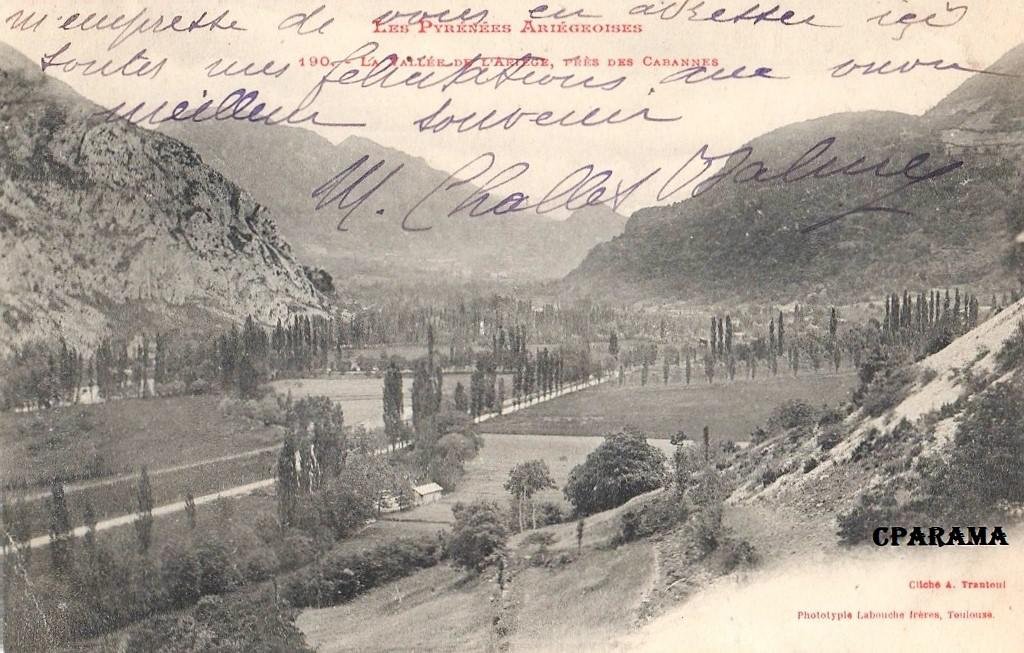 m'empresse de vous en adresser ici
LES PYRÉNÉES ARIÉGEOISES
toutes mes félicitations au
190. - LA VALLÉE DE L'ARIÈGE, PRÈS DES CABANNES
meilleur souvenir
M. Challes
CPARAMA
Cliché A. Trantoul
Phototypie Labouche frères, Toulouse.